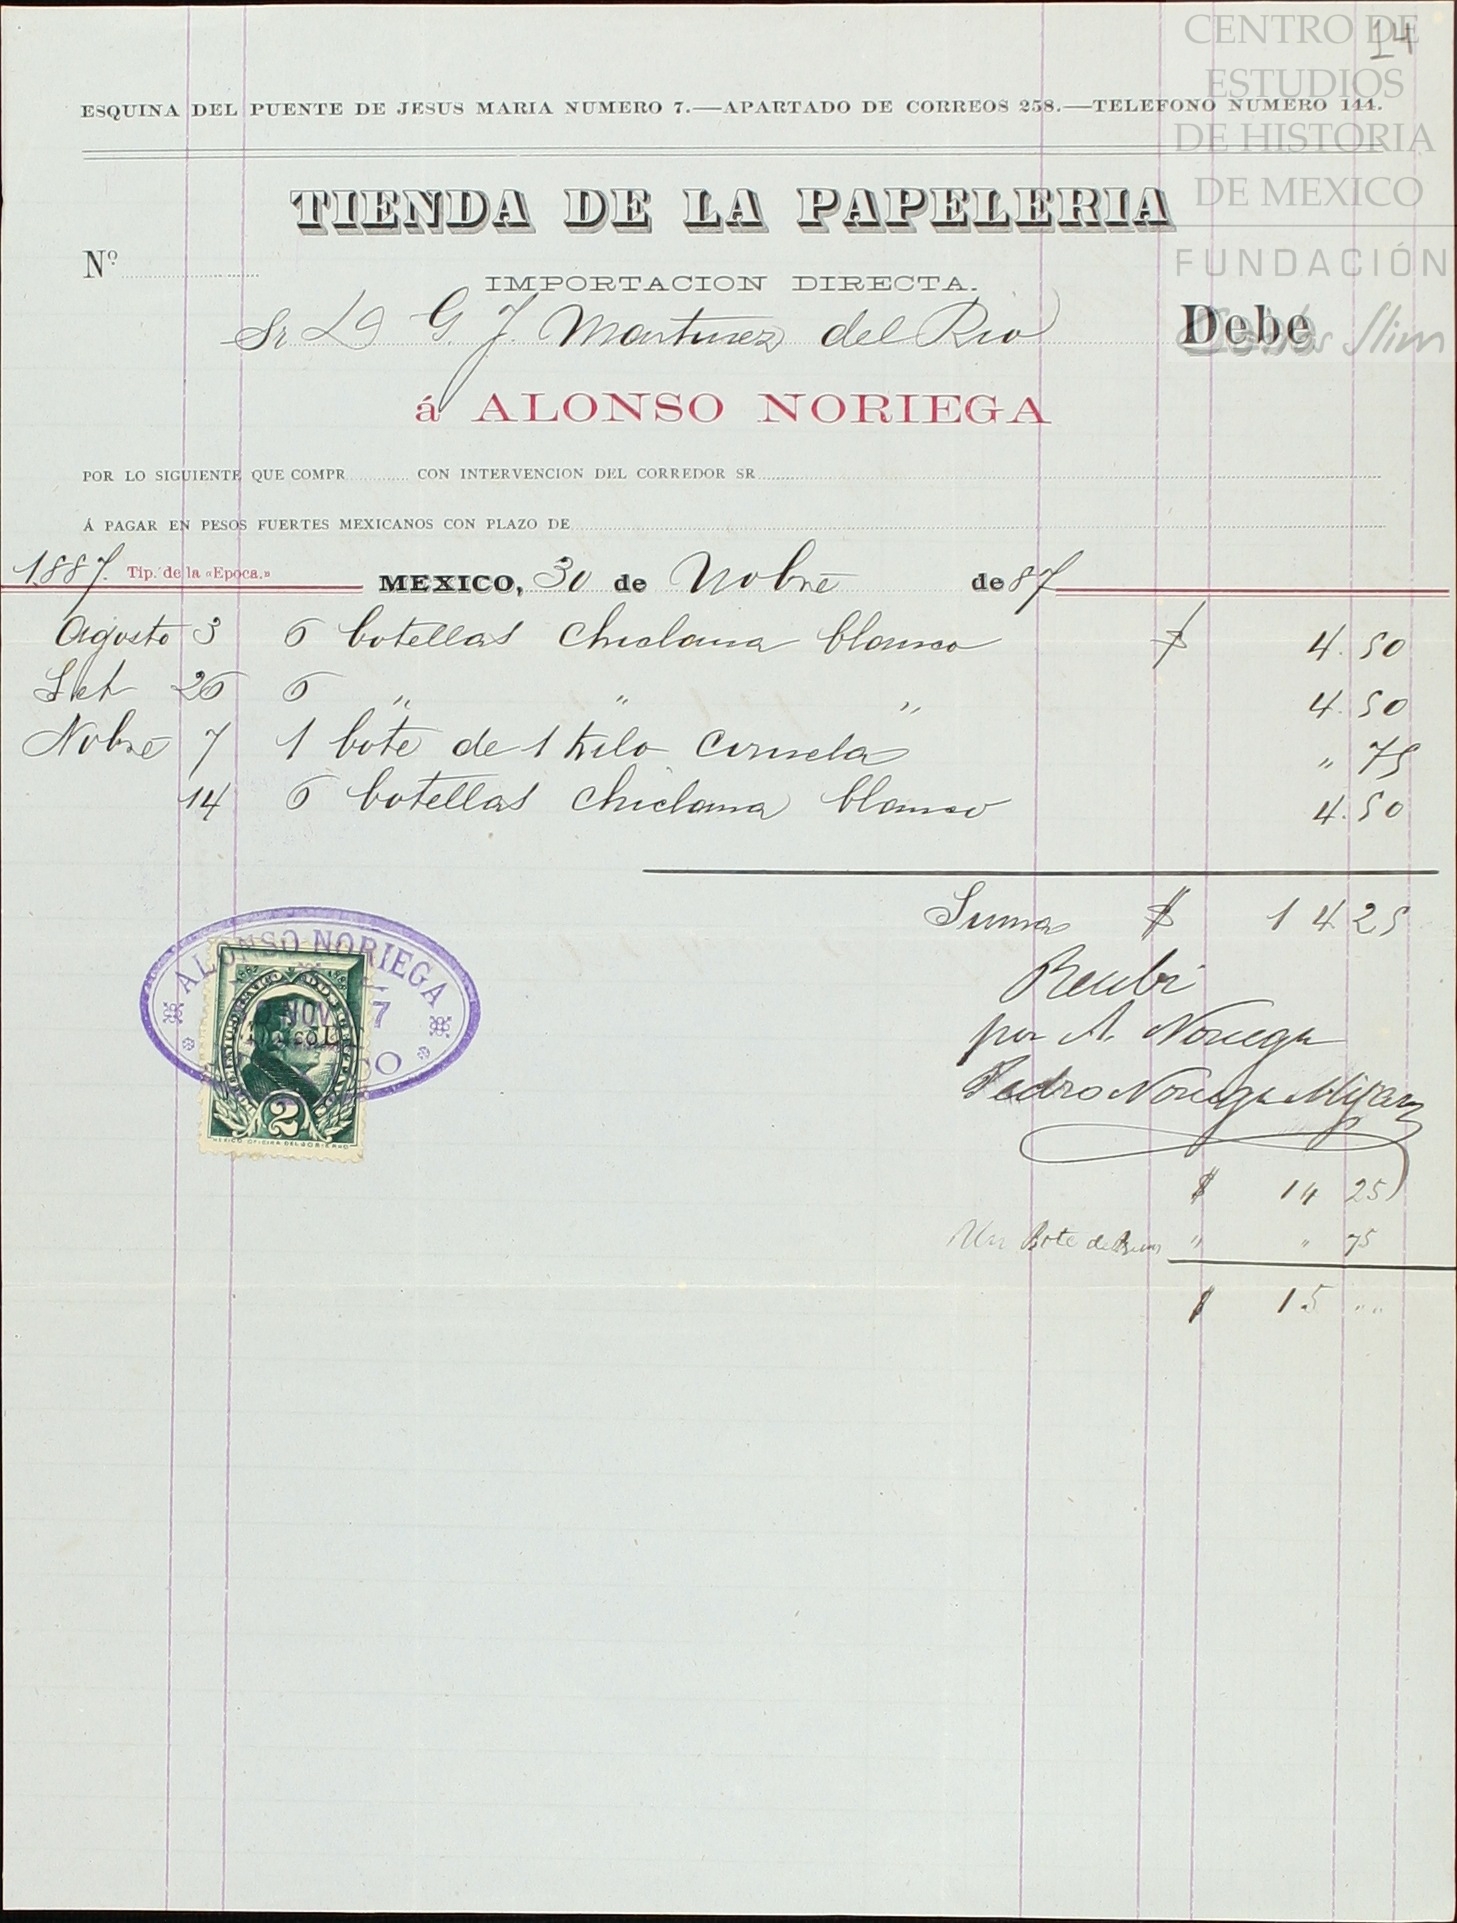 14
CENTRO DE
ESTUDIOS
DE HISTORIA
DE MEXICO
FUNDACIÓN
Carlos Slim
ESQUINA DEL PUENTE DE JESUS MARIA NUMERO 7.—APARTADO DE CORREOS 258.—TELEFONO NUMERO 144.
TIENDA DE LA PAPELERIA
Nº
IMPORTACION DIRECTA.
Sr D G. J. Martinez del Rio Debe
á ALONSO NORIEGA
POR LO SIGUIENTE QUE COMPR CON INTERVENCION DEL CORREDOR SR
Á PAGAR EN PESOS FUERTES MEXICANOS CON PLAZO DE
1887. Tip. de la «Epoca.» MEXICO, 30 de Nobre de 87
Agosto 3 6 botellas Chiclana blanco $ 4.50
Set 26 6 " " " 4.50
Nobre 7 1 bote de 1 kilo Ciruela " 75
14 6 botellas Chiclana blanco 4.50
Suma $ 14 25
ALONSO NORIEGA
NOV 7
2
MEXICO OFICINA DEL GOBIERNO
Recibi
por A. Noriega
Pedro Noriega Mijares
$ 14 25
Un Bote de " " 75
$ 15 " "